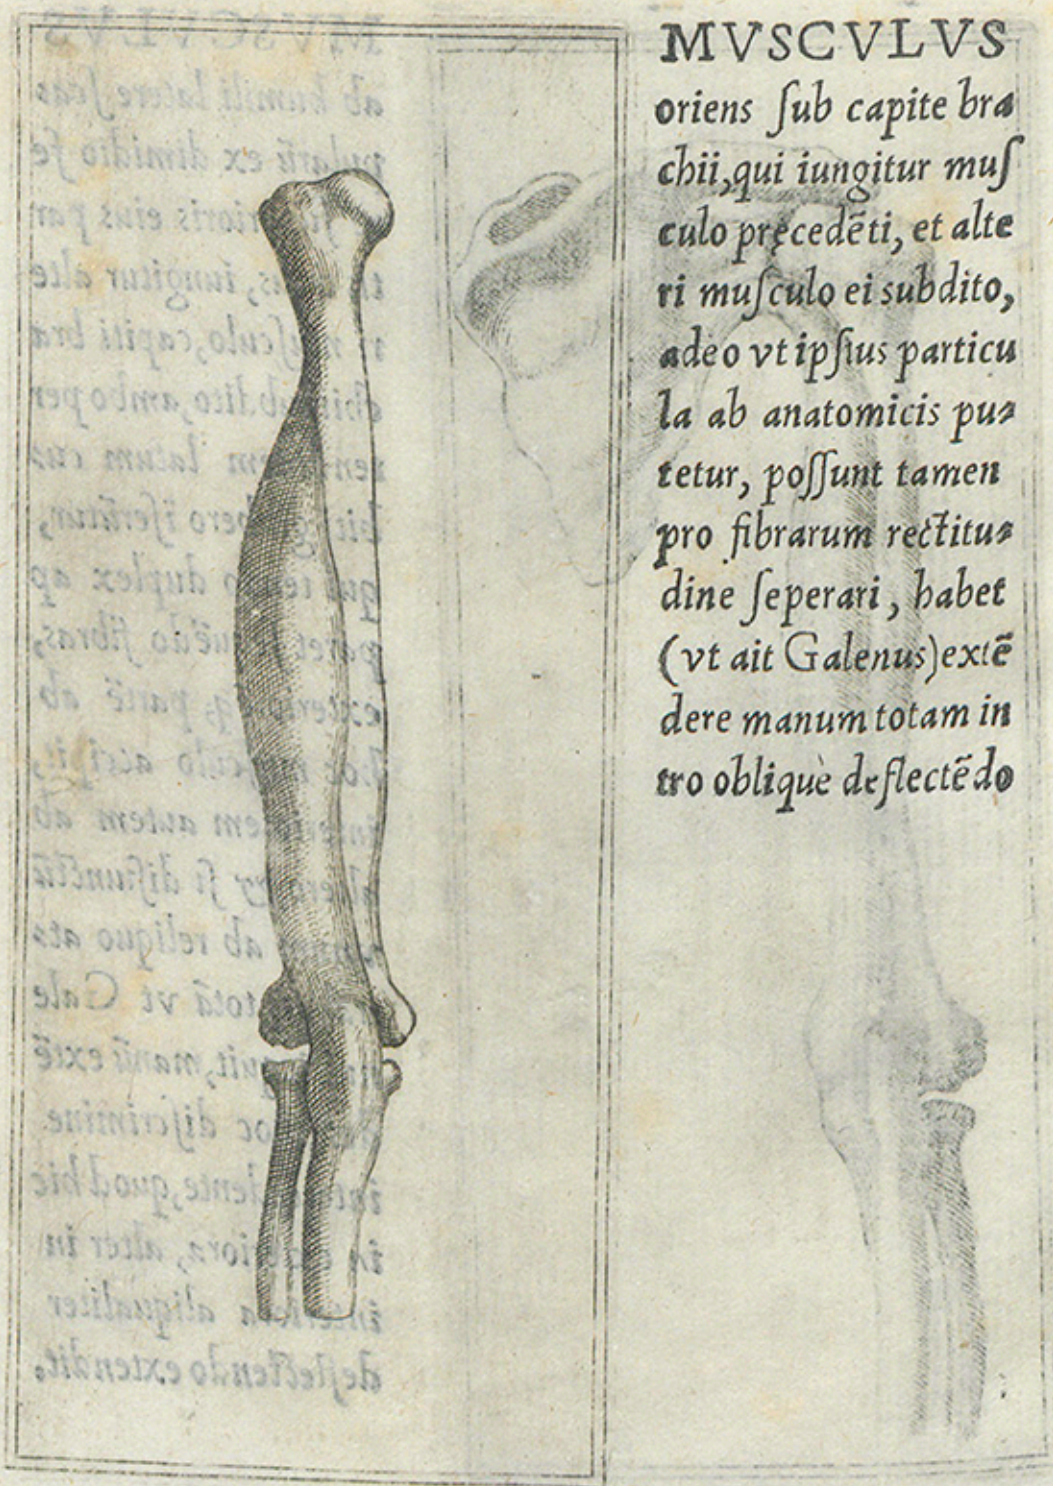 MVSCVLVS
oriens ſub capite bra
chii,qui iungitur muſ
culo pręcedēti, et alte
ri muſculo ei subdito,
adeo vt ipſius particu
la ab anatomicis pu⸗
tetur, poſſunt tamen
pro fibrarum rectitu⸗
dine ſeperari, habet
(vt ait Galenus)extē
dere manum totam in
tro obliquè deflectēdo